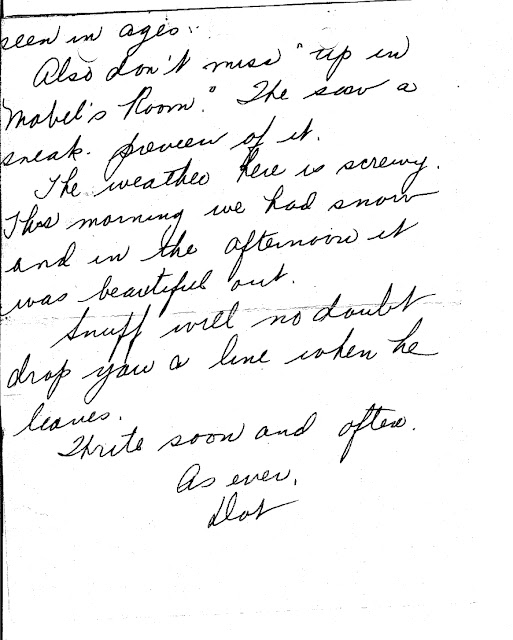 seen in ages..
Also don't miss "up in
Mabel's Room." The saw a
sneak. preview of it.
The weather here is screwy.
This morning we had snow
and in the afternoon it
was beautiful out.
Snuff will no doubt
drop you a line when he
leaves.
Write soon and often.
As ever,
Dot